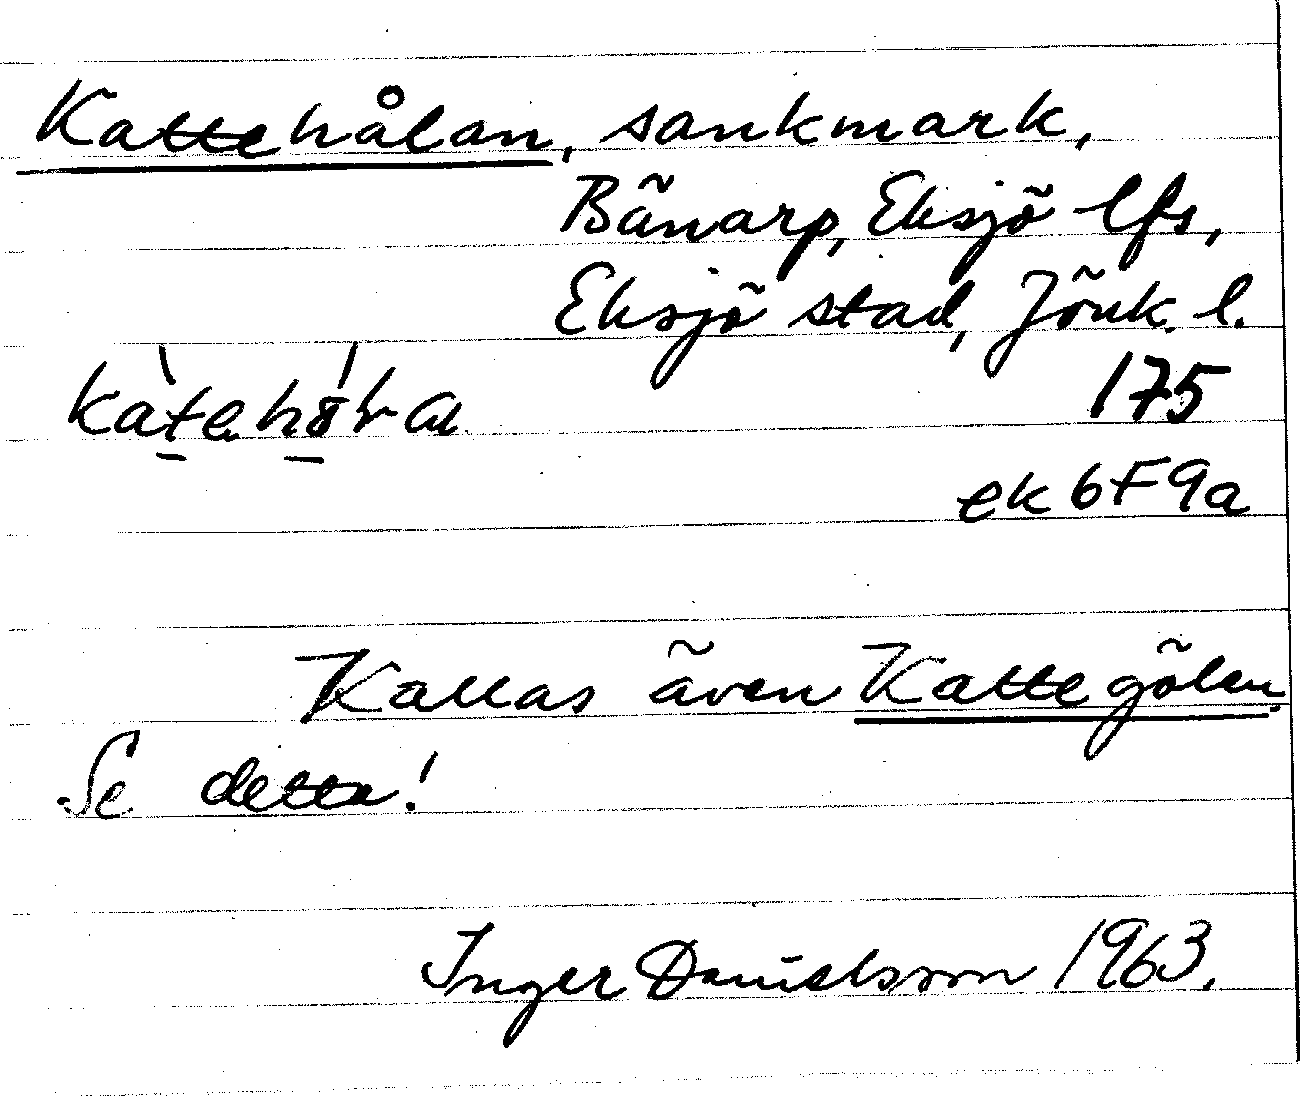 Kattehålan, sankmark,
Bänarp, Eksjö lfs,
Eksjö stad, Jönk. l.
175
ek 6F9a
Kallas även Kattegölen.
Se detta!
Inger Danielsson 1963.